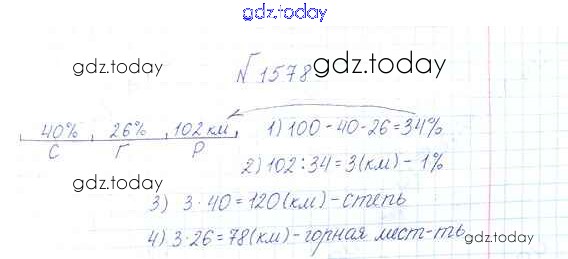 gdz.today
gdz.today
№1578 gdz.today
40% 26% 102 км 1) 100 - 40 - 26 = 34%
С Г Р
2) 102 : 34 = 3 (км) - 1%
gdz.today
3) 3 · 40 = 120 (км) - степь
4) 3 · 26 = 78 (км) - горная мест-ть
gdz.today